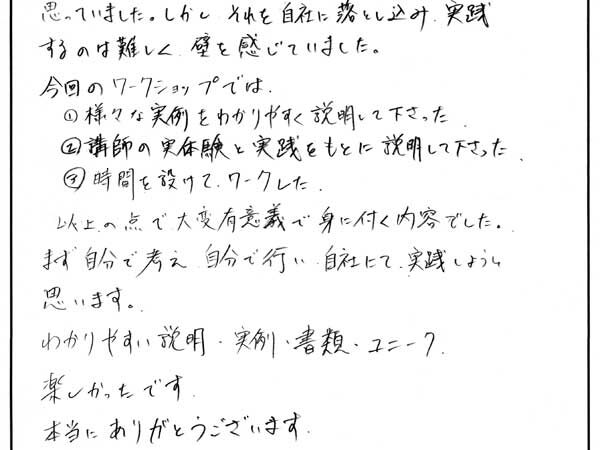 思っていました。しかし、それを自社に落とし込み、実践
するのは難しく、壁を感じていました。
今回のワークショップでは、
①様々な実例をわかりやすく説明して下さった、
②講師の実体験と実践をもとに説明して下さった、
③時間を設けて、ワークした、
以上の点で大変有意義で身に付く内容でした。
まず自分で考え、自分で行い、自社にて、実践しように
思います。
わかりやすい説明・実例・書類・ユニーク、
楽しかったです。
本当にありがとうございます。